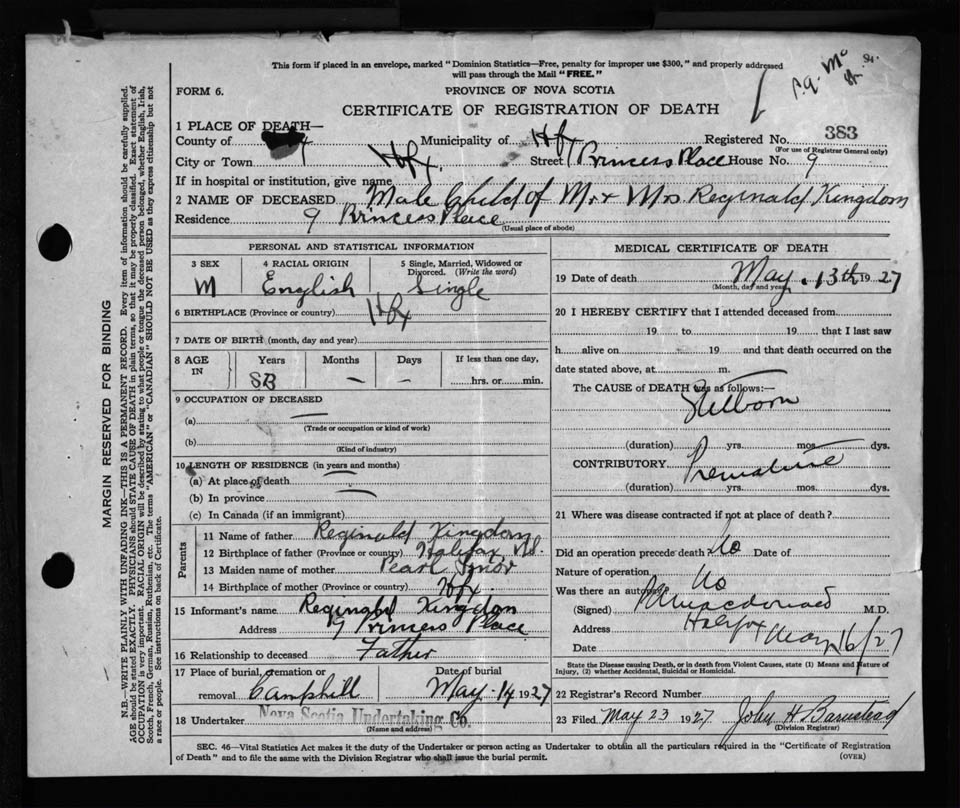 This form if placed in an envelope, marked "Dominion Statistics—Free, penalty for improper use $300," and properly addressed
will pass through the Mail "FREE."
FORM 6.
PROVINCE OF NOVA SCOTIA
CERTIFICATE OF REGISTRATION OF DEATH
1 PLACE OF DEATH—
County of
Municipality of Hfx
Registered No. 383
(For use of Registrar General only)
City or Town Hfx.
Street Princess Place House No. 9
If in hospital or institution, give name
2 NAME OF DECEASED Male Child of Mr & Mrs. Reginald Kingdom
Residence 9 Princess Place
(Usual place of abode)
PERSONAL AND STATISTICAL INFORMATION
3 SEX
M
4 RACIAL ORIGIN
English
5 Single, Married, Widowed or
Divorced. (Write the word)
Single
6 BIRTHPLACE (Province or country) Hfx
7 DATE OF BIRTH (month, day and year)
8 AGE
IN
Years
SB
Months
—
Days
—
If less than one day,
hrs. or min.
9 OCCUPATION OF DECEASED
(a) —
(Trade or occupation or kind of work)
(b)
(Kind of industry)
10 LENGTH OF RESIDENCE (in years and months)
(a) At place of death
(b) In province
(c) In Canada (if an immigrant)
Parents
11 Name of father Reginald Kingdom
12 Birthplace of father (Province or country) Halifax N.S.
13 Maiden name of mother Pearl
14 Birthplace of mother (Province or country) Hfx
15 Informant's name Reginald Kingdon
Address 9 Princess Place
16 Relationship to deceased Father
17 Place of burial, cremation or
removal Camphill
Date of burial
May 14 1927
18 Undertaker Nova Scotia Undertaking Co.
(Name and address)
MEDICAL CERTIFICATE OF DEATH
19 Date of death May 13th 1927
(Month, day and year)
20 I HEREBY CERTIFY that I attended deceased from
19 to 19 that I last saw
h alive on 19 and that death occurred on the
date stated above, at m.
The CAUSE OF DEATH was as follows:—
Stillborn
(duration) yrs. mos. dys.
CONTRIBUTORY Premature
(duration) yrs. mos. dys.
21 Where was disease contracted if not at place of death?
Did an operation precede death No Date of
Nature of operation
Was there an autopsy No
(Signed) Macdonald M.D.
Address Halifax
Date May 16/27
State the Disease causing Death, or in death from Violent Causes, state (1) Means and Nature of
Injury, (2) whether Accidental, Suicidal or Homicidal.
22 Registrar's Record Number
23 Filed May 23 1927 John H Barnstead
(Division Registrar)
SEC. 46—Vital Statistics Act makes it the duty of the Undertaker or person acting as Undertaker to obtain all the particulars required in the "Certificate of Registration
of Death" and to file the same with the Division Registrar who shall issue the burial permit.
(OVER)
MARGIN RESERVED FOR BINDING
N.B.—WRITE PLAINLY WITH UNFADING INK—THIS IS A PERMANENT RECORD. Every item of information should be carefully supplied.
AGE should be stated EXACTLY. PHYSICIANS should STATE CAUSE OF DEATH in plain terms, so that it may be properly classified. Exact statement of
OCCUPATION is very important. RACIAL ORIGIN will be described by stating to what people or tongue the deceased person belonged, whether English, Irish,
Scotch, French, German, Russian, Ruthenian, etc. The terms "AMERICAN" or "CANADIAN" SHOULD NOT BE USED as they express citizenship but not
a race or people. See instructions on back of Certificate.